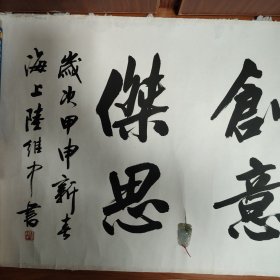 創意
傑思
歲次甲申新春
海上陸維中書